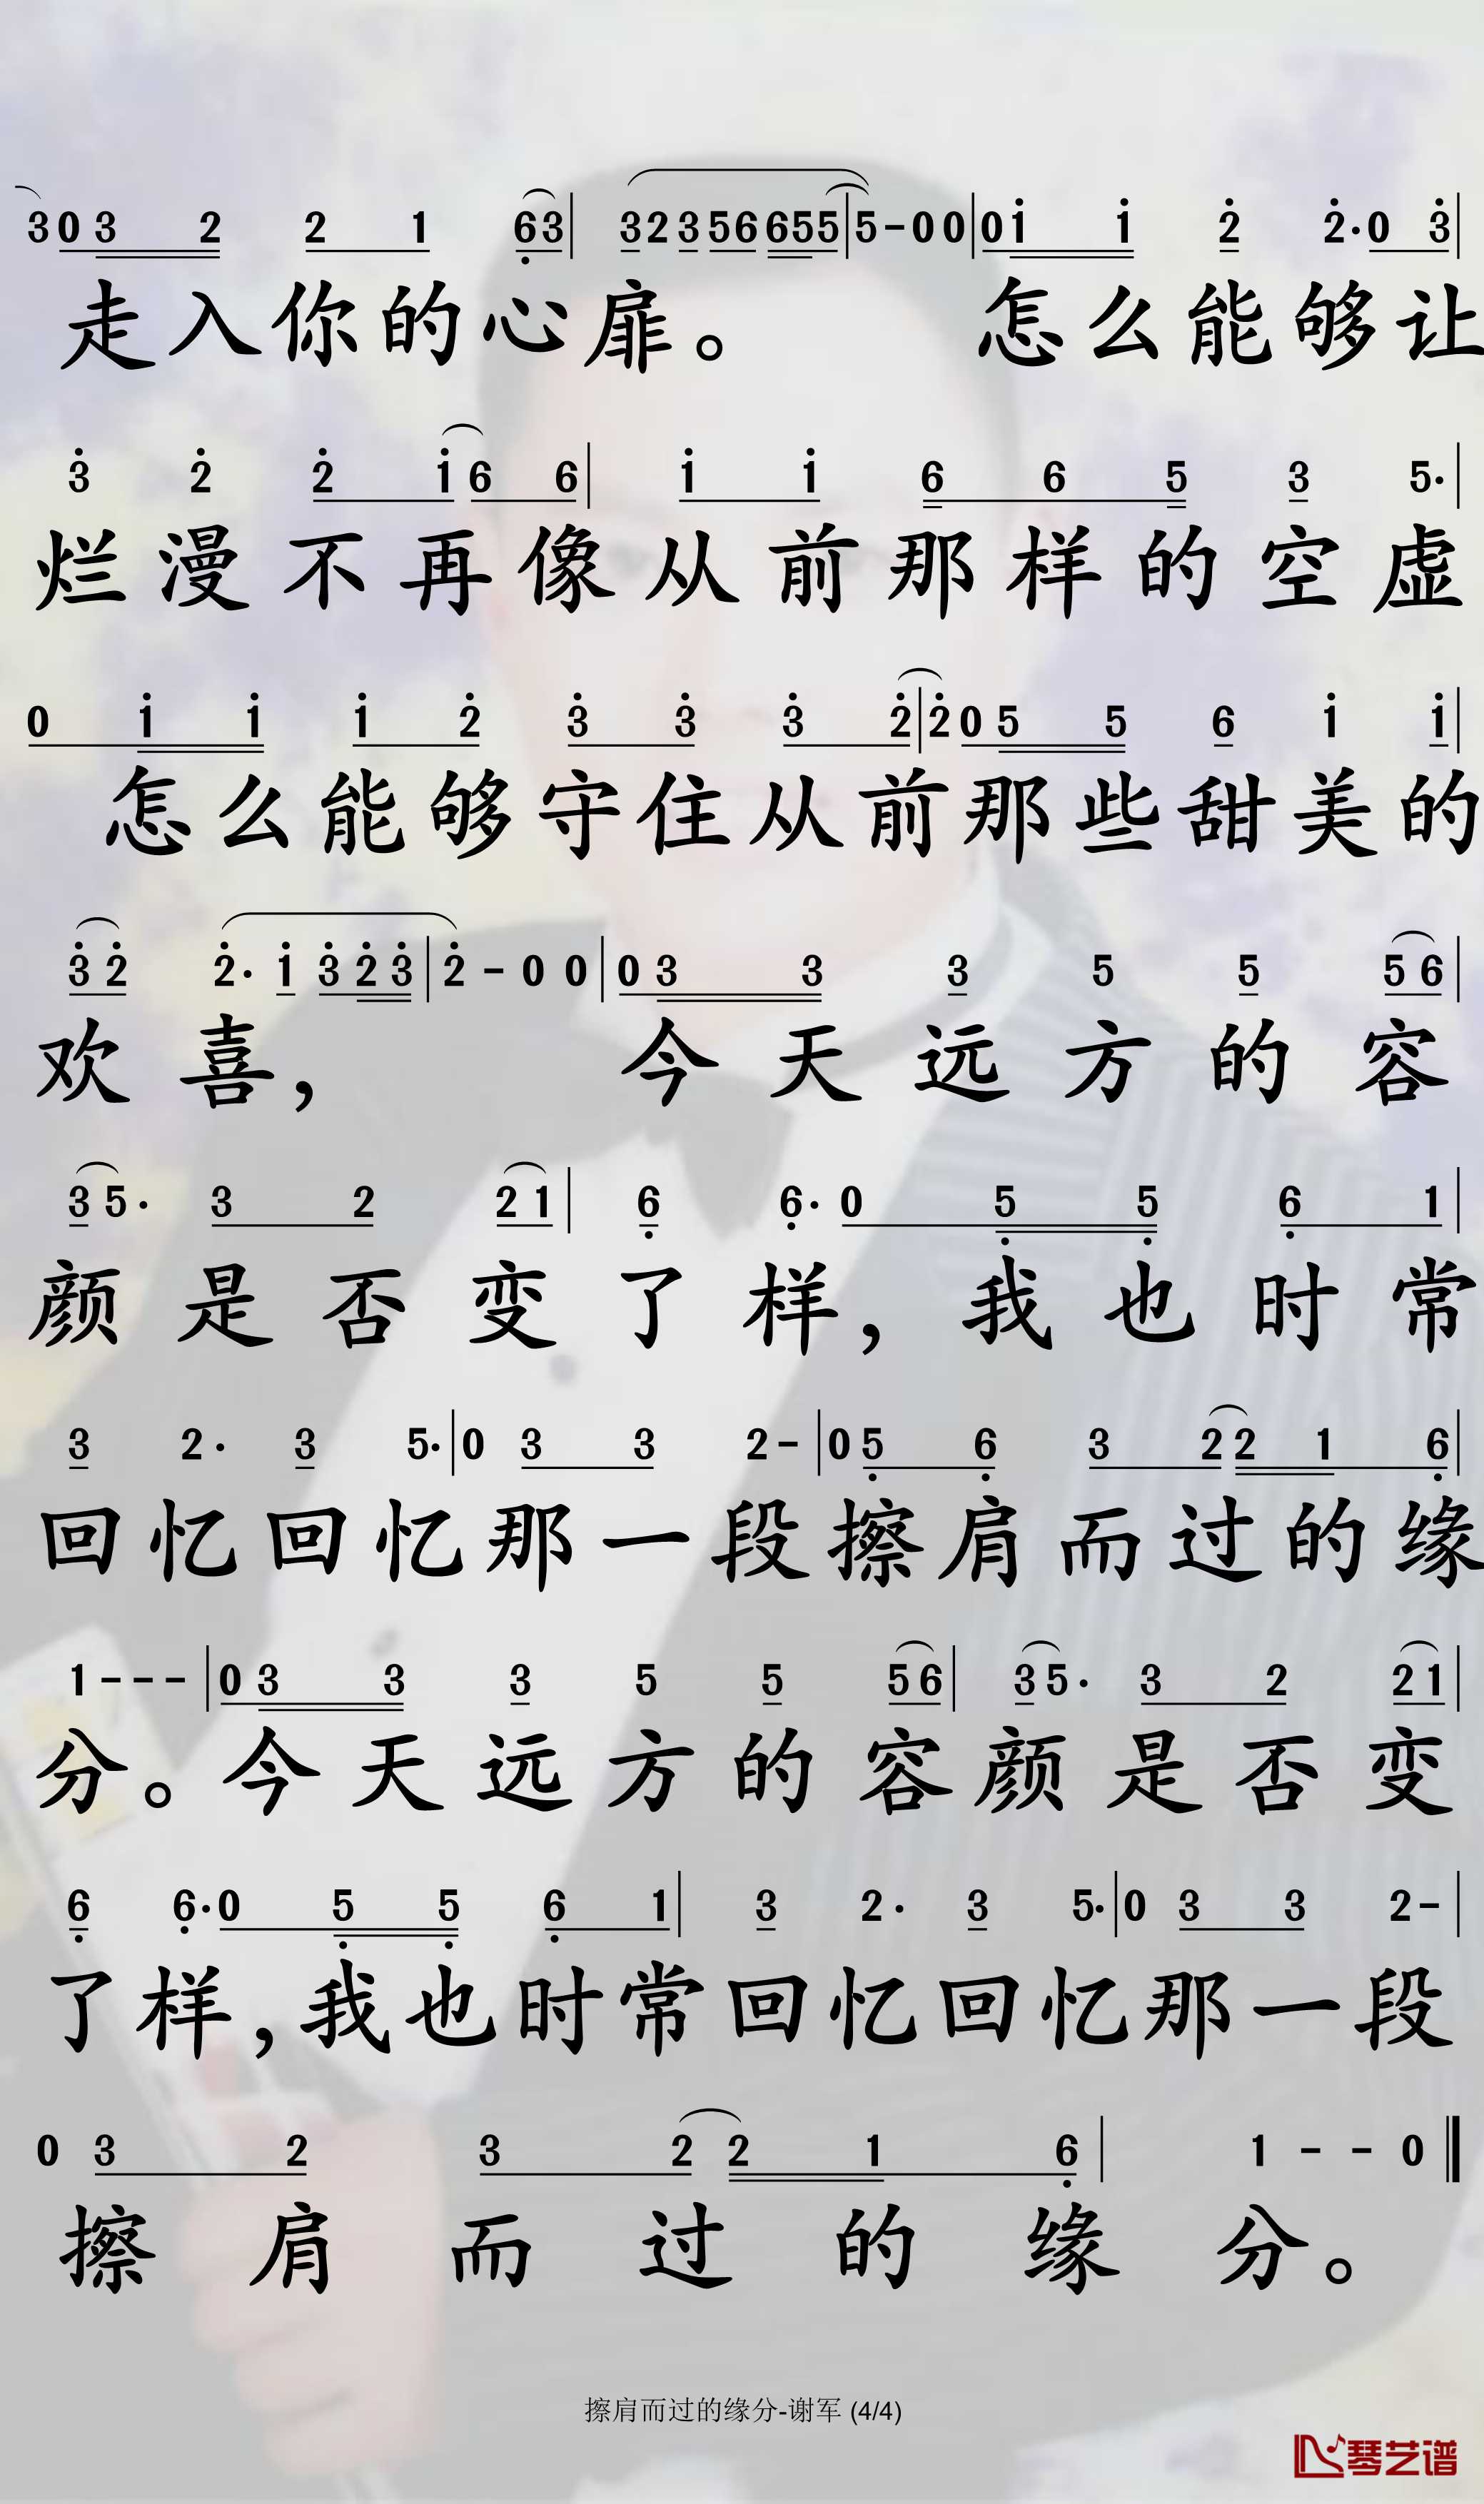 3 0 3 2 2 1 6 3 | 3 2 3 5 6 6 5 5 | 5 - 0 0 | 0 1 1 2 2 · 0 3 |
走入你的心扉。 怎么能够让
3 2 2 1 6 6 | 1 1 6 6 5 3 5 · |
烂漫不再像从前那样的空虚
0 1 1 1 2 3 3 3 2 | 2 0 5 5 6 1 1 |
怎么能够守住从前那些甜美的
3 2 2 · 1 3 2 3 | 2 - 0 0 | 0 3 3 3 5 5 5 6 |
欢喜, 今天远方的容
3 5 · 3 2 2 1 | 6 6 · 0 5 5 6 1 |
颜是否变了样,我也时常
3 2 · 3 5 · | 0 3 3 2 - | 0 5 6 3 2 2 1 6 |
回忆回忆那一段擦肩而过的缘
1 - - - | 0 3 3 3 5 5 5 6 | 3 5 · 3 2 2 1 |
分。今天远方的容颜是否变
6 6 · 0 5 5 6 1 | 3 2 · 3 5 · | 0 3 3 2 - |
了样,我也时常回忆回忆那一段
0 3 2 3 2 2 1 6 | 1 - - 0 ‖
擦肩而过的缘分。
擦肩而过的缘分-谢军 (4/4)
琴艺谱